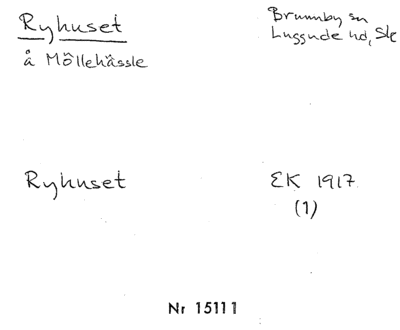 Ryhuset
å Möllehässle
Brunnby sn
Luggude hd, Sk
Ryhuset
EK 1917
(1)
Nr 15111